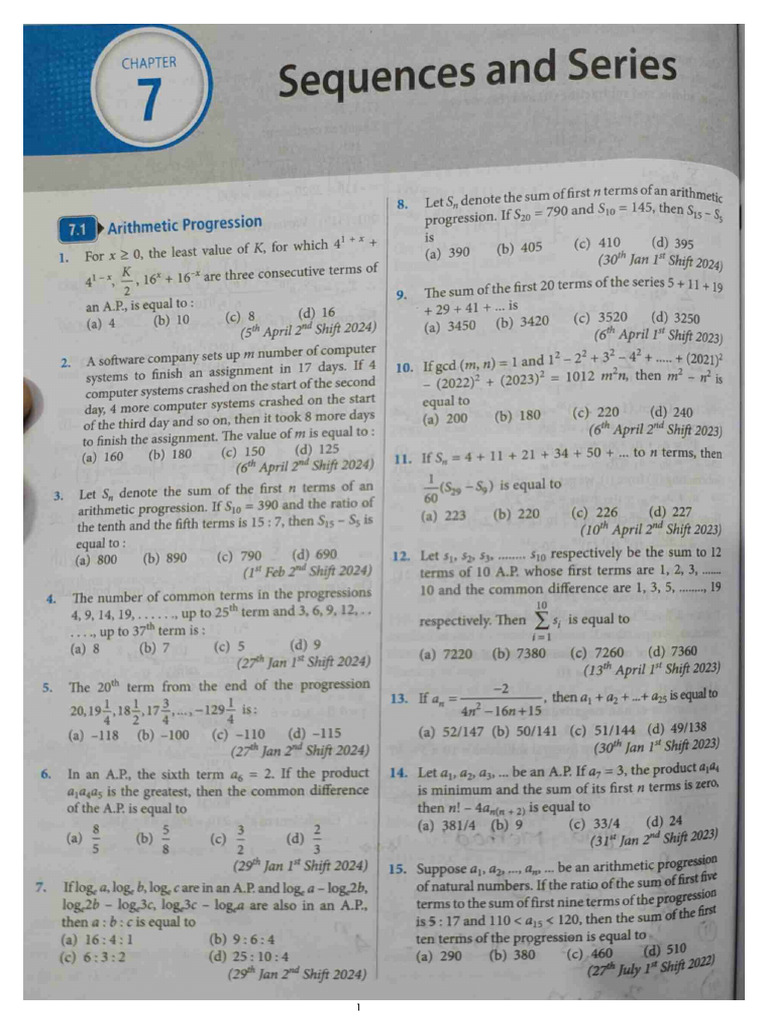 CHAPTER
7
Sequences and Series
7.1 Arithmetic Progression
1. For x ≥ 0, the least value of K, for which 4^(1 + x) +
4^(1 – x), K/2, 16^x + 16^(–x) are three consecutive terms of
an A.P., is equal to :
(a) 4 (b) 10 (c) 8 (d) 16
(5th April 2nd Shift 2024)
2. A software company sets up m number of computer
systems to finish an assignment in 17 days. If 4
computer systems crashed on the start of the second
day, 4 more computer systems crashed on the start
of the third day and so on, then it took 8 more days
to finish the assignment. The value of m is equal to :
(a) 160 (b) 180 (c) 150 (d) 125
(6th April 2nd Shift 2024)
3. Let Sn denote the sum of the first n terms of an
arithmetic progression. If S10 = 390 and the ratio of
the tenth and the fifth terms is 15 : 7, then S15 – S5 is
equal to :
(a) 800 (b) 890 (c) 790 (d) 690
(1st Feb 2nd Shift 2024)
4. The number of common terms in the progressions
4, 9, 14, 19, . . . . . ., up to 25th term and 3, 6, 9, 12, . .
. . . ., up to 37th term is :
(a) 8 (b) 7 (c) 5 (d) 9
(27th Jan 1st Shift 2024)
5. The 20th term from the end of the progression
20, 19 1/4, 18 1/2, 17 3/4, ..., –129 1/4 is :
(a) –118 (b) –100 (c) –110 (d) –115
(27th Jan 2nd Shift 2024)
6. In an A.P., the sixth term a6 = 2. If the product
a1a4a5 is the greatest, then the common difference
of the A.P. is equal to
(a) 8/5 (b) 5/8 (c) 3/2 (d) 2/3
(29th Jan 1st Shift 2024)
7. If loge a, loge b, loge c are in an A.P. and loge a – loge2b,
loge2b – loge3c, loge3c – logea are also in an A.P.,
then a : b : c is equal to
(a) 16 : 4 : 1 (b) 9 : 6 : 4
(c) 6 : 3 : 2 (d) 25 : 10 : 4
(29th Jan 2nd Shift 2024)
8. Let Sn denote the sum of first n terms of an arithmetic
progression. If S20 = 790 and S10 = 145, then S15 – S5
is
(a) 390 (b) 405 (c) 410 (d) 395
(30th Jan 1st Shift 2024)
9. The sum of the first 20 terms of the series 5 + 11 + 19
+ 29 + 41 + ... is
(a) 3450 (b) 3420 (c) 3520 (d) 3250
(6th April 1st Shift 2023)
10. If gcd (m, n) = 1 and 1² – 2² + 3² – 4² + ..... + (2021)²
– (2022)² + (2023)² = 1012 m²n, then m² – n² is
equal to
(a) 200 (b) 180 (c) 220 (d) 240
(6th April 2nd Shift 2023)
11. If Sn = 4 + 11 + 21 + 34 + 50 + ... to n terms, then
1/60 (S29 – S9) is equal to
(a) 223 (b) 220 (c) 226 (d) 227
(10th April 2nd Shift 2023)
12. Let s1, s2, s3, ........ s10 respectively be the sum to 12
terms of 10 A.P. whose first terms are 1, 2, 3, .......
10 and the common difference are 1, 3, 5, ........, 19
respectively. Then Σ(i=1 to 10) si is equal to
(a) 7220 (b) 7380 (c) 7260 (d) 7360
(13th April 1st Shift 2023)
13. If an = –2/(4n² – 16n + 15), then a1 + a2 + ...+ a25 is equal to
(a) 52/147 (b) 50/141 (c) 51/144 (d) 49/138
(30th Jan 1st Shift 2023)
14. Let a1, a2, a3, ... be an A.P. If a7 = 3, the product a1a4
is minimum and the sum of its first n terms is zero,
then n! – 4an(n + 2) is equal to
(a) 381/4 (b) 9 (c) 33/4 (d) 24
(31st Jan 2nd Shift 2023)
15. Suppose a1, a2, ..., an, ... be an arithmetic progression
of natural numbers. If the ratio of the sum of first five
terms to the sum of first nine terms of the progression
is 5 : 17 and 110 < a15 < 120, then the sum of the first
ten terms of the progression is equal to
(a) 290 (b) 380 (c) 460 (d) 510
(27th July 1st Shift 2022)
1